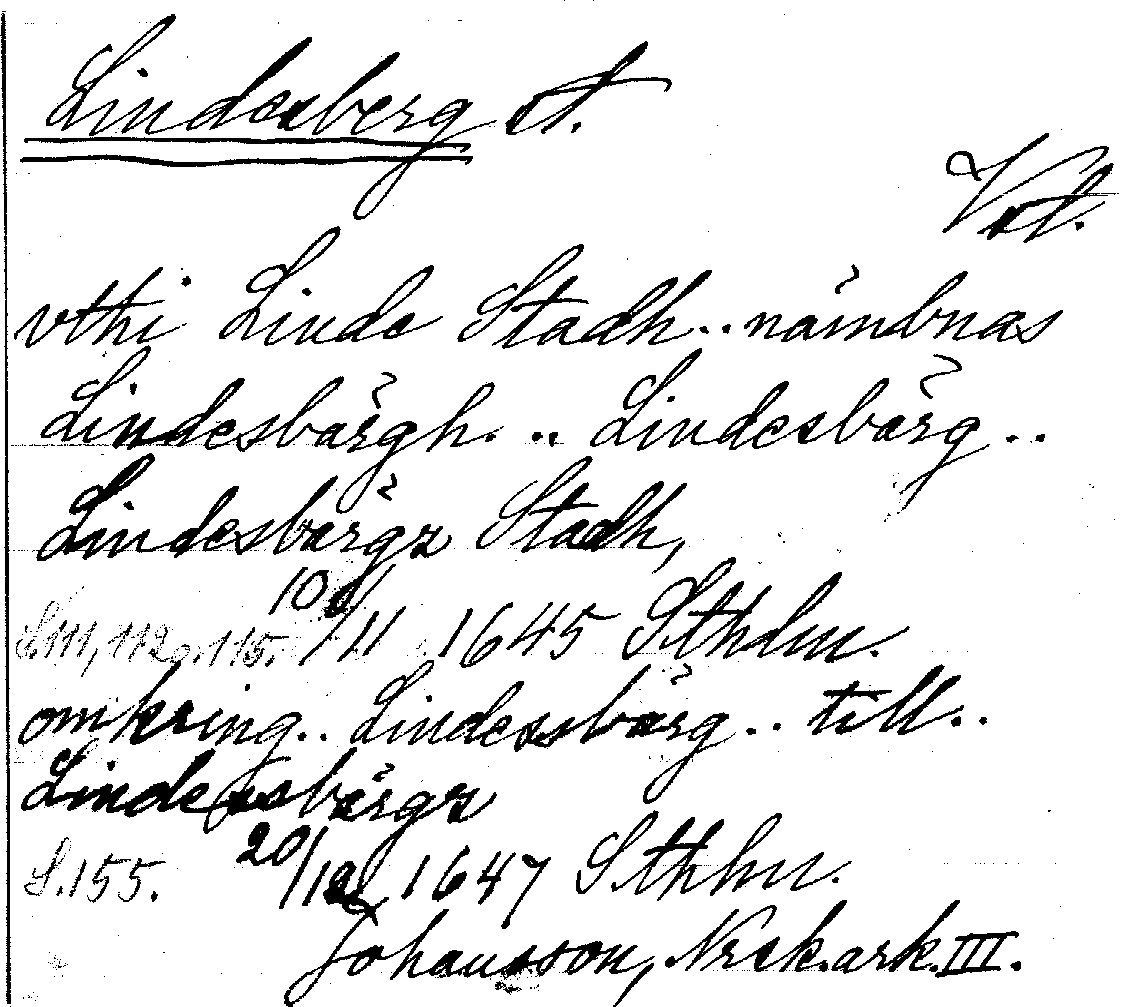 Lindesberg st.
Vstl.
vthi Linde Stadh.. nämbnas
Lindesbärgh. .. Lindesbärg..
Lindesbärgz Stadh,
S.111, 112, 115. 10/11 1645 Sthlm.
omkring.. Lindessbärg.. till..
Lindessbärgz
S.155. 20/12 1647 Sthlm.
Johansson, Nrsk.ark.III.